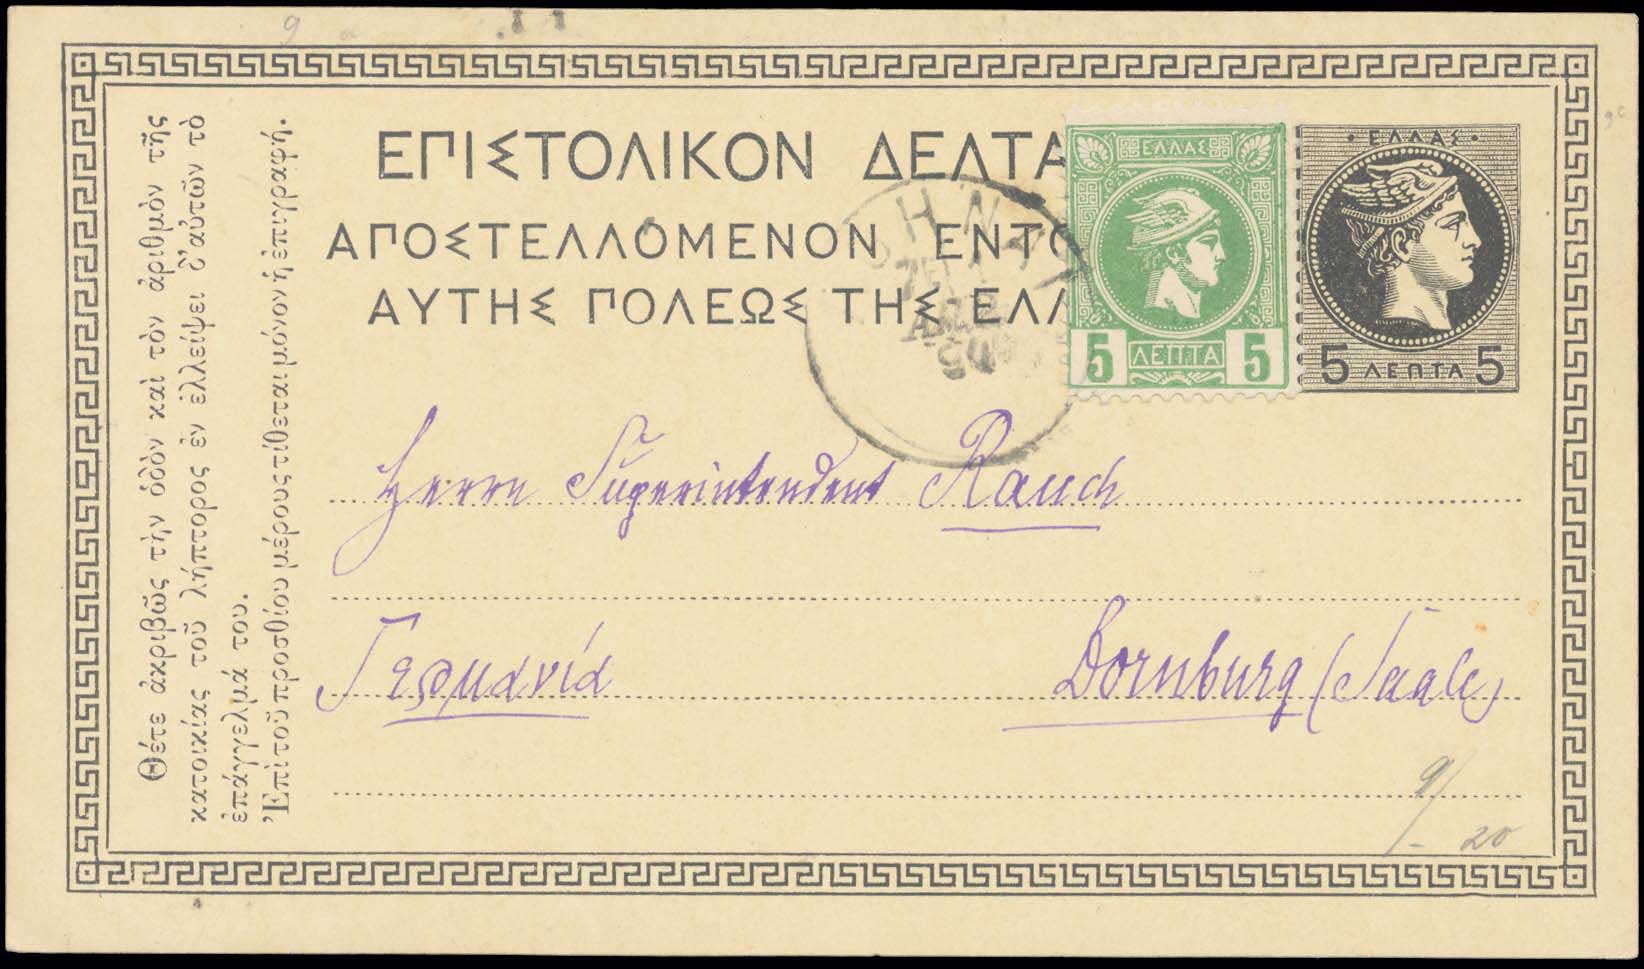 ΕΠΙΣΤΟΛΙΚΟΝ ΔΕΛΤΑ
ΑΠΟΣΤΕΛΛΟΜΕΝΟΝ ΕΝΤΟ
ΑΥΤΗΣ ΠΟΛΕΩΣ ΤΗΣ ΕΛΛ
ΕΛΛΑΣ
5 ΛΕΠΤΑ 5
ΕΛΛΑΣ
5 ΛΕΠΤΑ 5
ΗΝ
Θέτε ἀκριβῶς τὴν ὁδὸν καὶ τὸν ἀριθμὸν τῆς
κατοικίας τοῦ λήπτορος ἐν ἐλλείψει δ'αὐτῶν τὸ
ἐπάγγελμά του.
Ἐπὶ τοῦ προσθίου μέρους τίθεται μόνον ἡ ἐπιγραφή.
Herrn Superintendent Rauch
Γερμανία Dornburg (Saale)
9
20